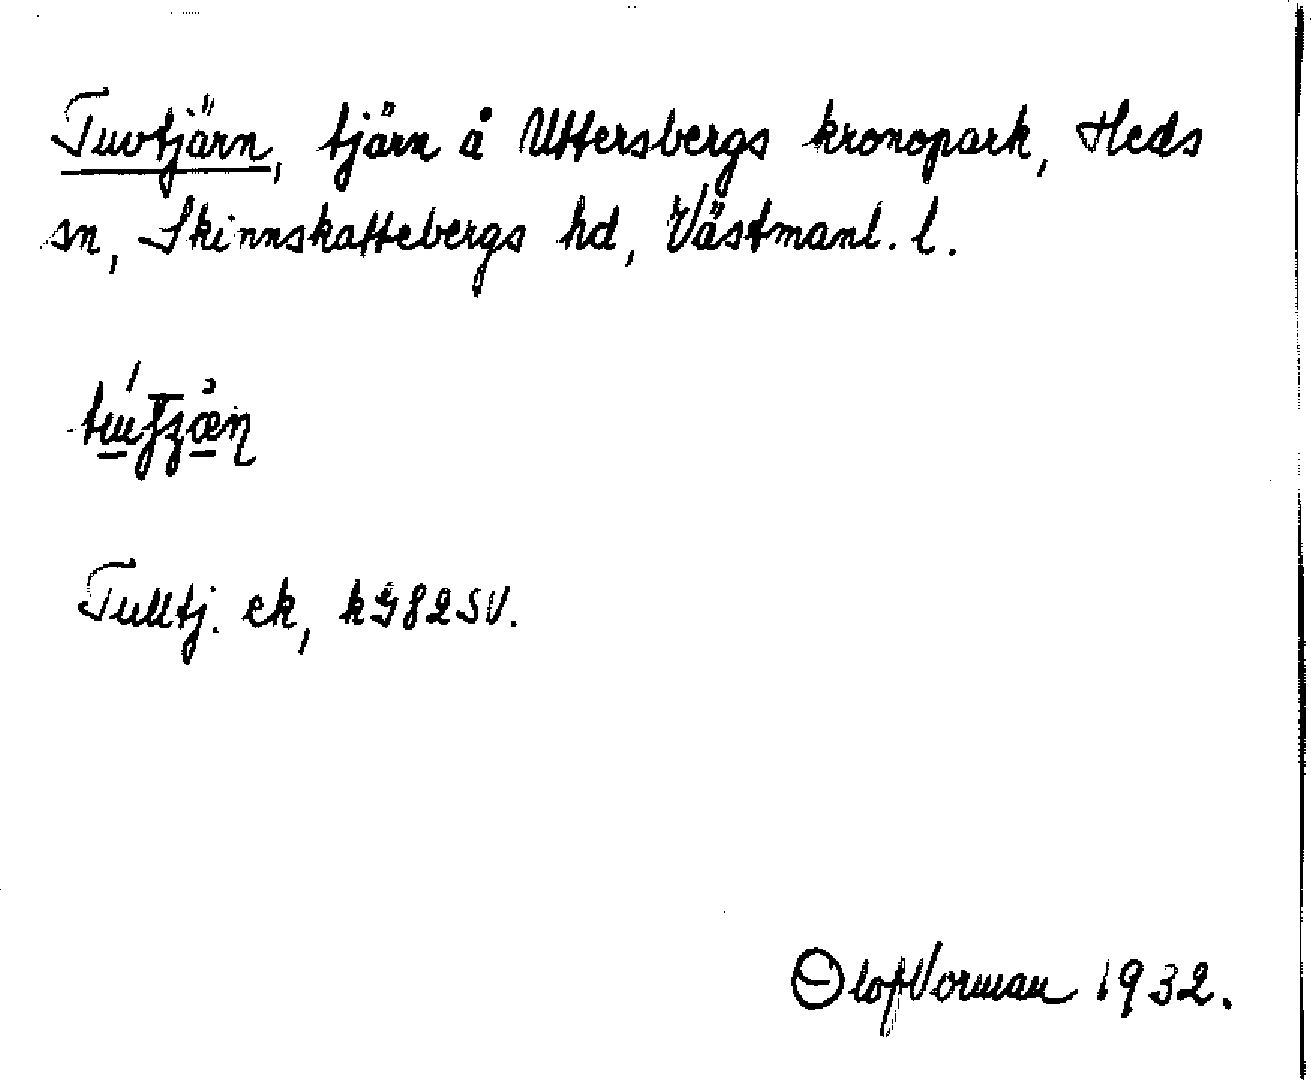 Tuvtjärn, tjärn å Uttersbergs kronopark, Heds
sn, Skinnskattebergs hd, Västmanl. l.
Tulltj. ek, k982SV.
Olof Vorman 1932.